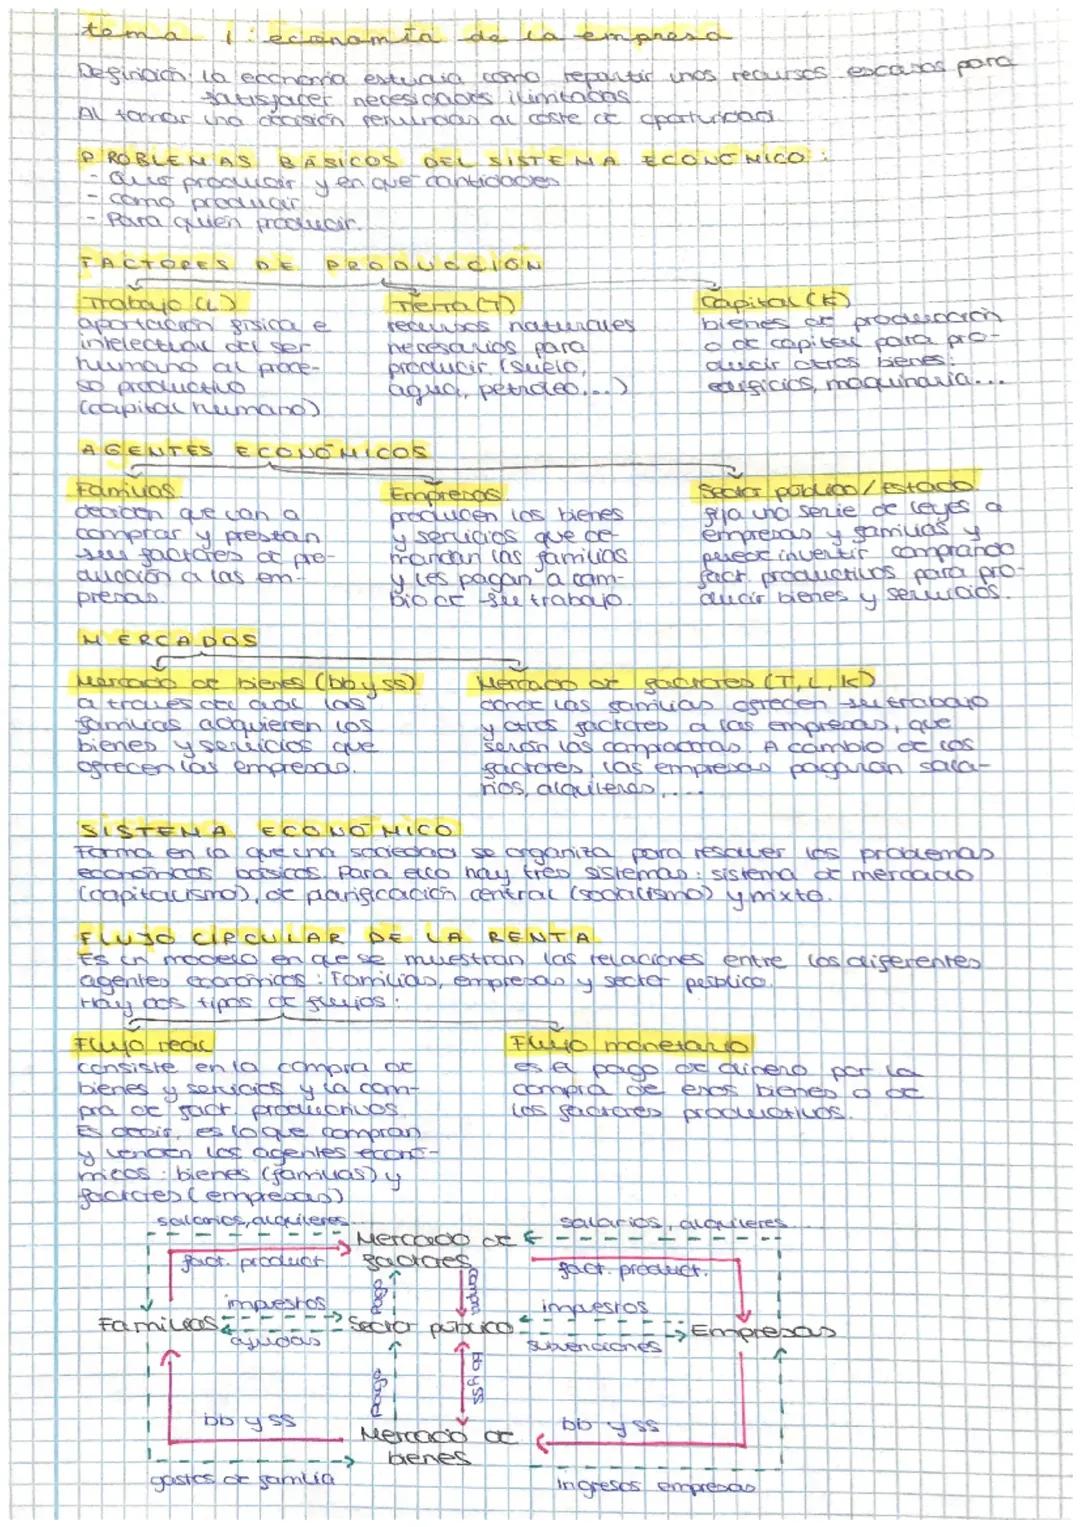 tema 1: economía de la empresa
Definición: la economía estudia como repartir unos recursos escasos para
satisfacer necesidades ilimitadas.
Al tomar una decisión renunciamos al coste de oportunidad.
PROBLEMAS BÁSICOS DEL SISTEMA ECONÓMICO:
- Qué producir y en que cantidades
- como producir
- Para quien producir.
FACTORES DE PRODUCCIÓN
Trabajo (L)
aportación física e
intelectual del ser
humano al proce-
so productivo
(capital humano)
Tierra (T)
recursos naturales
necesarios para
producir (suelo,
agua, petróleo...)
Capital (K)
bienes de producción
o de capital para pro-
ducir otros bienes:
edificios, maquinaria...
AGENTES ECONÓMICOS
Familias
deciden que van a
comprar y prestan
sus factores de pro-
ducción a las em-
presas.
Empresas
producen los bienes
y servicios que de-
mandan las familias
y les pagan a cam-
bio de su trabajo.
Sector público/estado
fija una serie de leyes a
empresas y familias y
puede invertir comprando
fact. productivos para pro-
ducir bienes y servicios.
MERCADOS
Mercado de bienes (bb y ss)
a traves del cual las
familias adquieren los
bienes y servicios que
ofrecen las empresas.
Mercado de factores (T, L, K)
donde las familias ofrecen su trabajo
y otros factores a las empresas, que
serán las compradoras. A cambio de los
factores, las empresas pagarán sala-
rios, alquileres,....
SISTEMA ECONÓMICO
Forma en la que una sociedad se organiza para resolver los problemas
económicos básicos. Para ello hay tres sistemas: sistema de mercado
(capitalismo), de planificación central (socialismo) y mixto.
FLUJO CIRCULAR DE LA RENTA
Es un modelo en que se muestran las relaciones entre los diferentes
agentes económicos: Familias, empresas y sector público.
Hay dos tipos de flujos:
Flujo real
consiste en la compra de
bienes y servicios y la com-
pra de fact. productivos.
Es decir, es lo que compran
y venden los agentes econó-
micos: bienes (familias) y
factores (empresas)
Flujo monetario
es el pago de dinero por la
compra de esos bienes o de
los factores productivos.
salarios, alquileres...
salarios, alquileres...
Mercado de
factores
fact. product.
fact. product.
pago
compra
impuestos
impuestos
Familias
Sector público
Empresas
ayudas
subvenciones
pago
bb y ss
bb y ss
bb y ss
Mercado de
bienes
gastos de familia
ingresos empresas